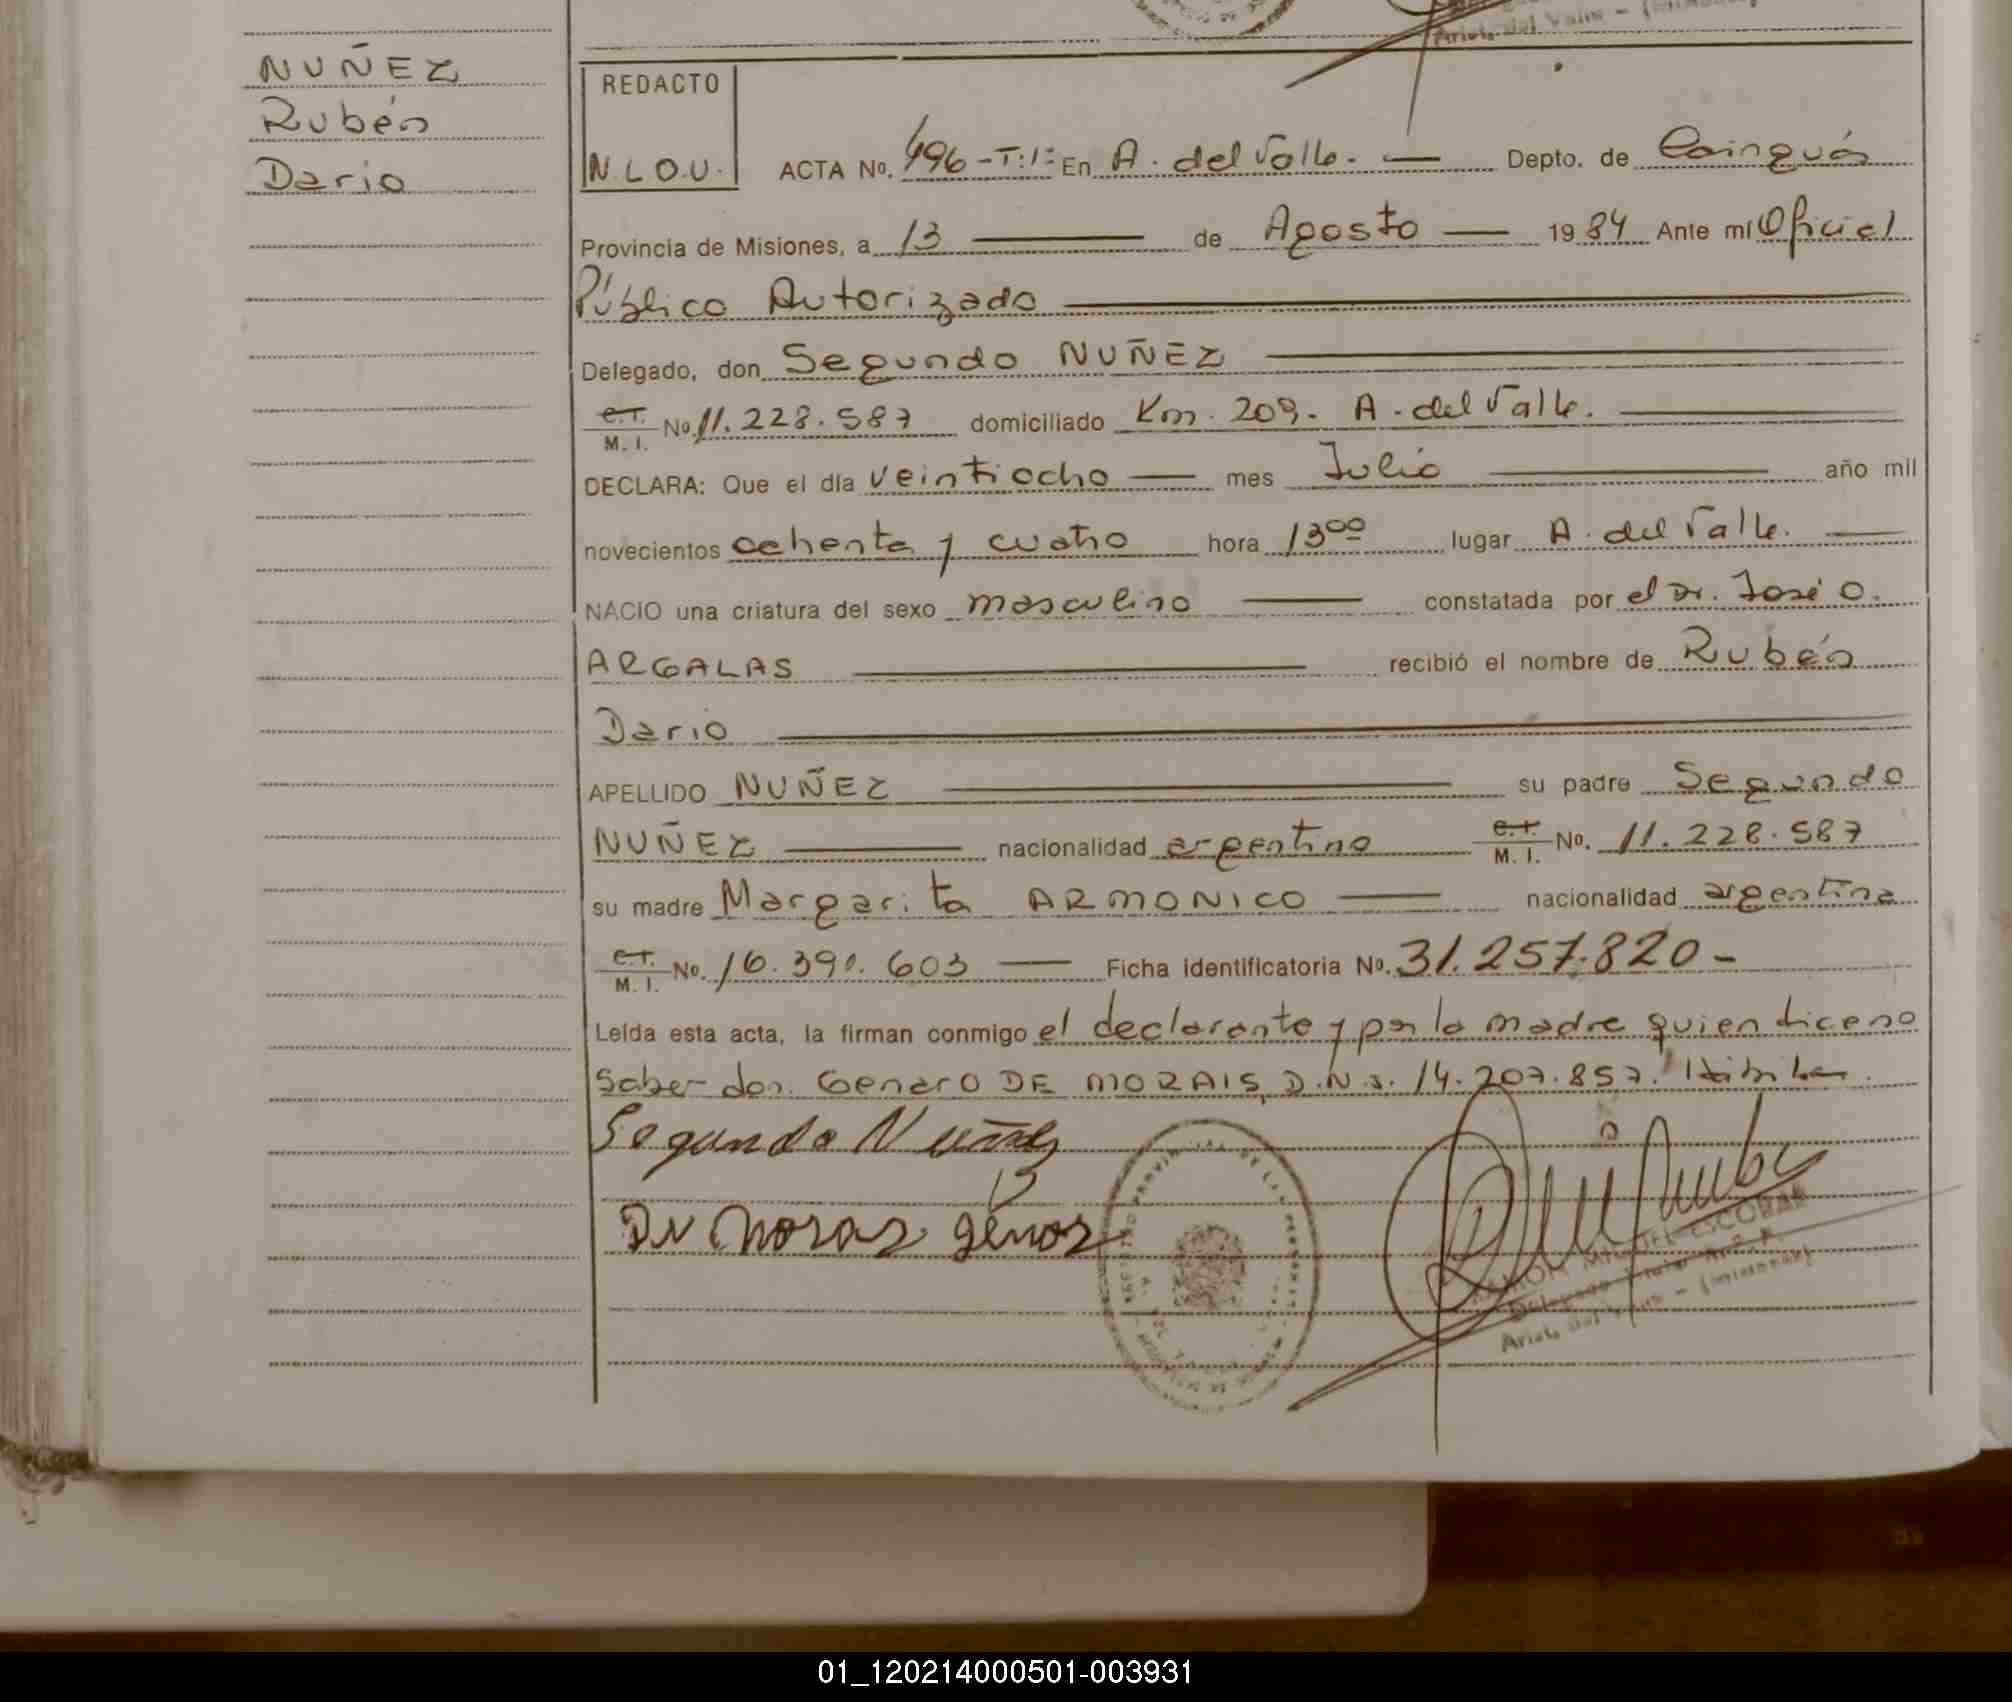 NUÑEZ
Rubén
Dario
REDACTO
N.L.O.U.
ACTA No. 496-T:1= En A. del Valle. Depto. de Cainguás
Provincia de Misiones, a 13 de Agosto 1984 Ante mí Oficial
Público Autorizado
Delegado, don Segundo NUÑEZ
C.I. M. I. No. 11.228.587 domiciliado Km. 209. A. del Valle.
DECLARA: Que el día veintiocho mes Julio año mil
novecientos ochenta y cuatro hora 13 00 lugar A. del Valle.
NACIO una criatura del sexo masculino constatada por el Dr. José O.
ARGALAS recibió el nombre de Rubén
Dario
APELLIDO NUÑEZ su padre Segundo
NUÑEZ nacionalidad argentino C.I. M. I. No. 11.228.587
su madre Margarita ARMONICO nacionalidad argentina
C.I. M. I. No. 16.391.603 Ficha identificatoria No. 31.257.820-
Leída esta acta, la firman conmigo el declarante y por la madre quien dice no
saber don Genaro DE MORAIS, D.N.I. 14.207.857.
Segundo Nuñez
De Moraz
RAMON MIGUEL ESCOBAR
Delegado Titular
Arist. del Valle - (Misiones)
01_120214000501-003931